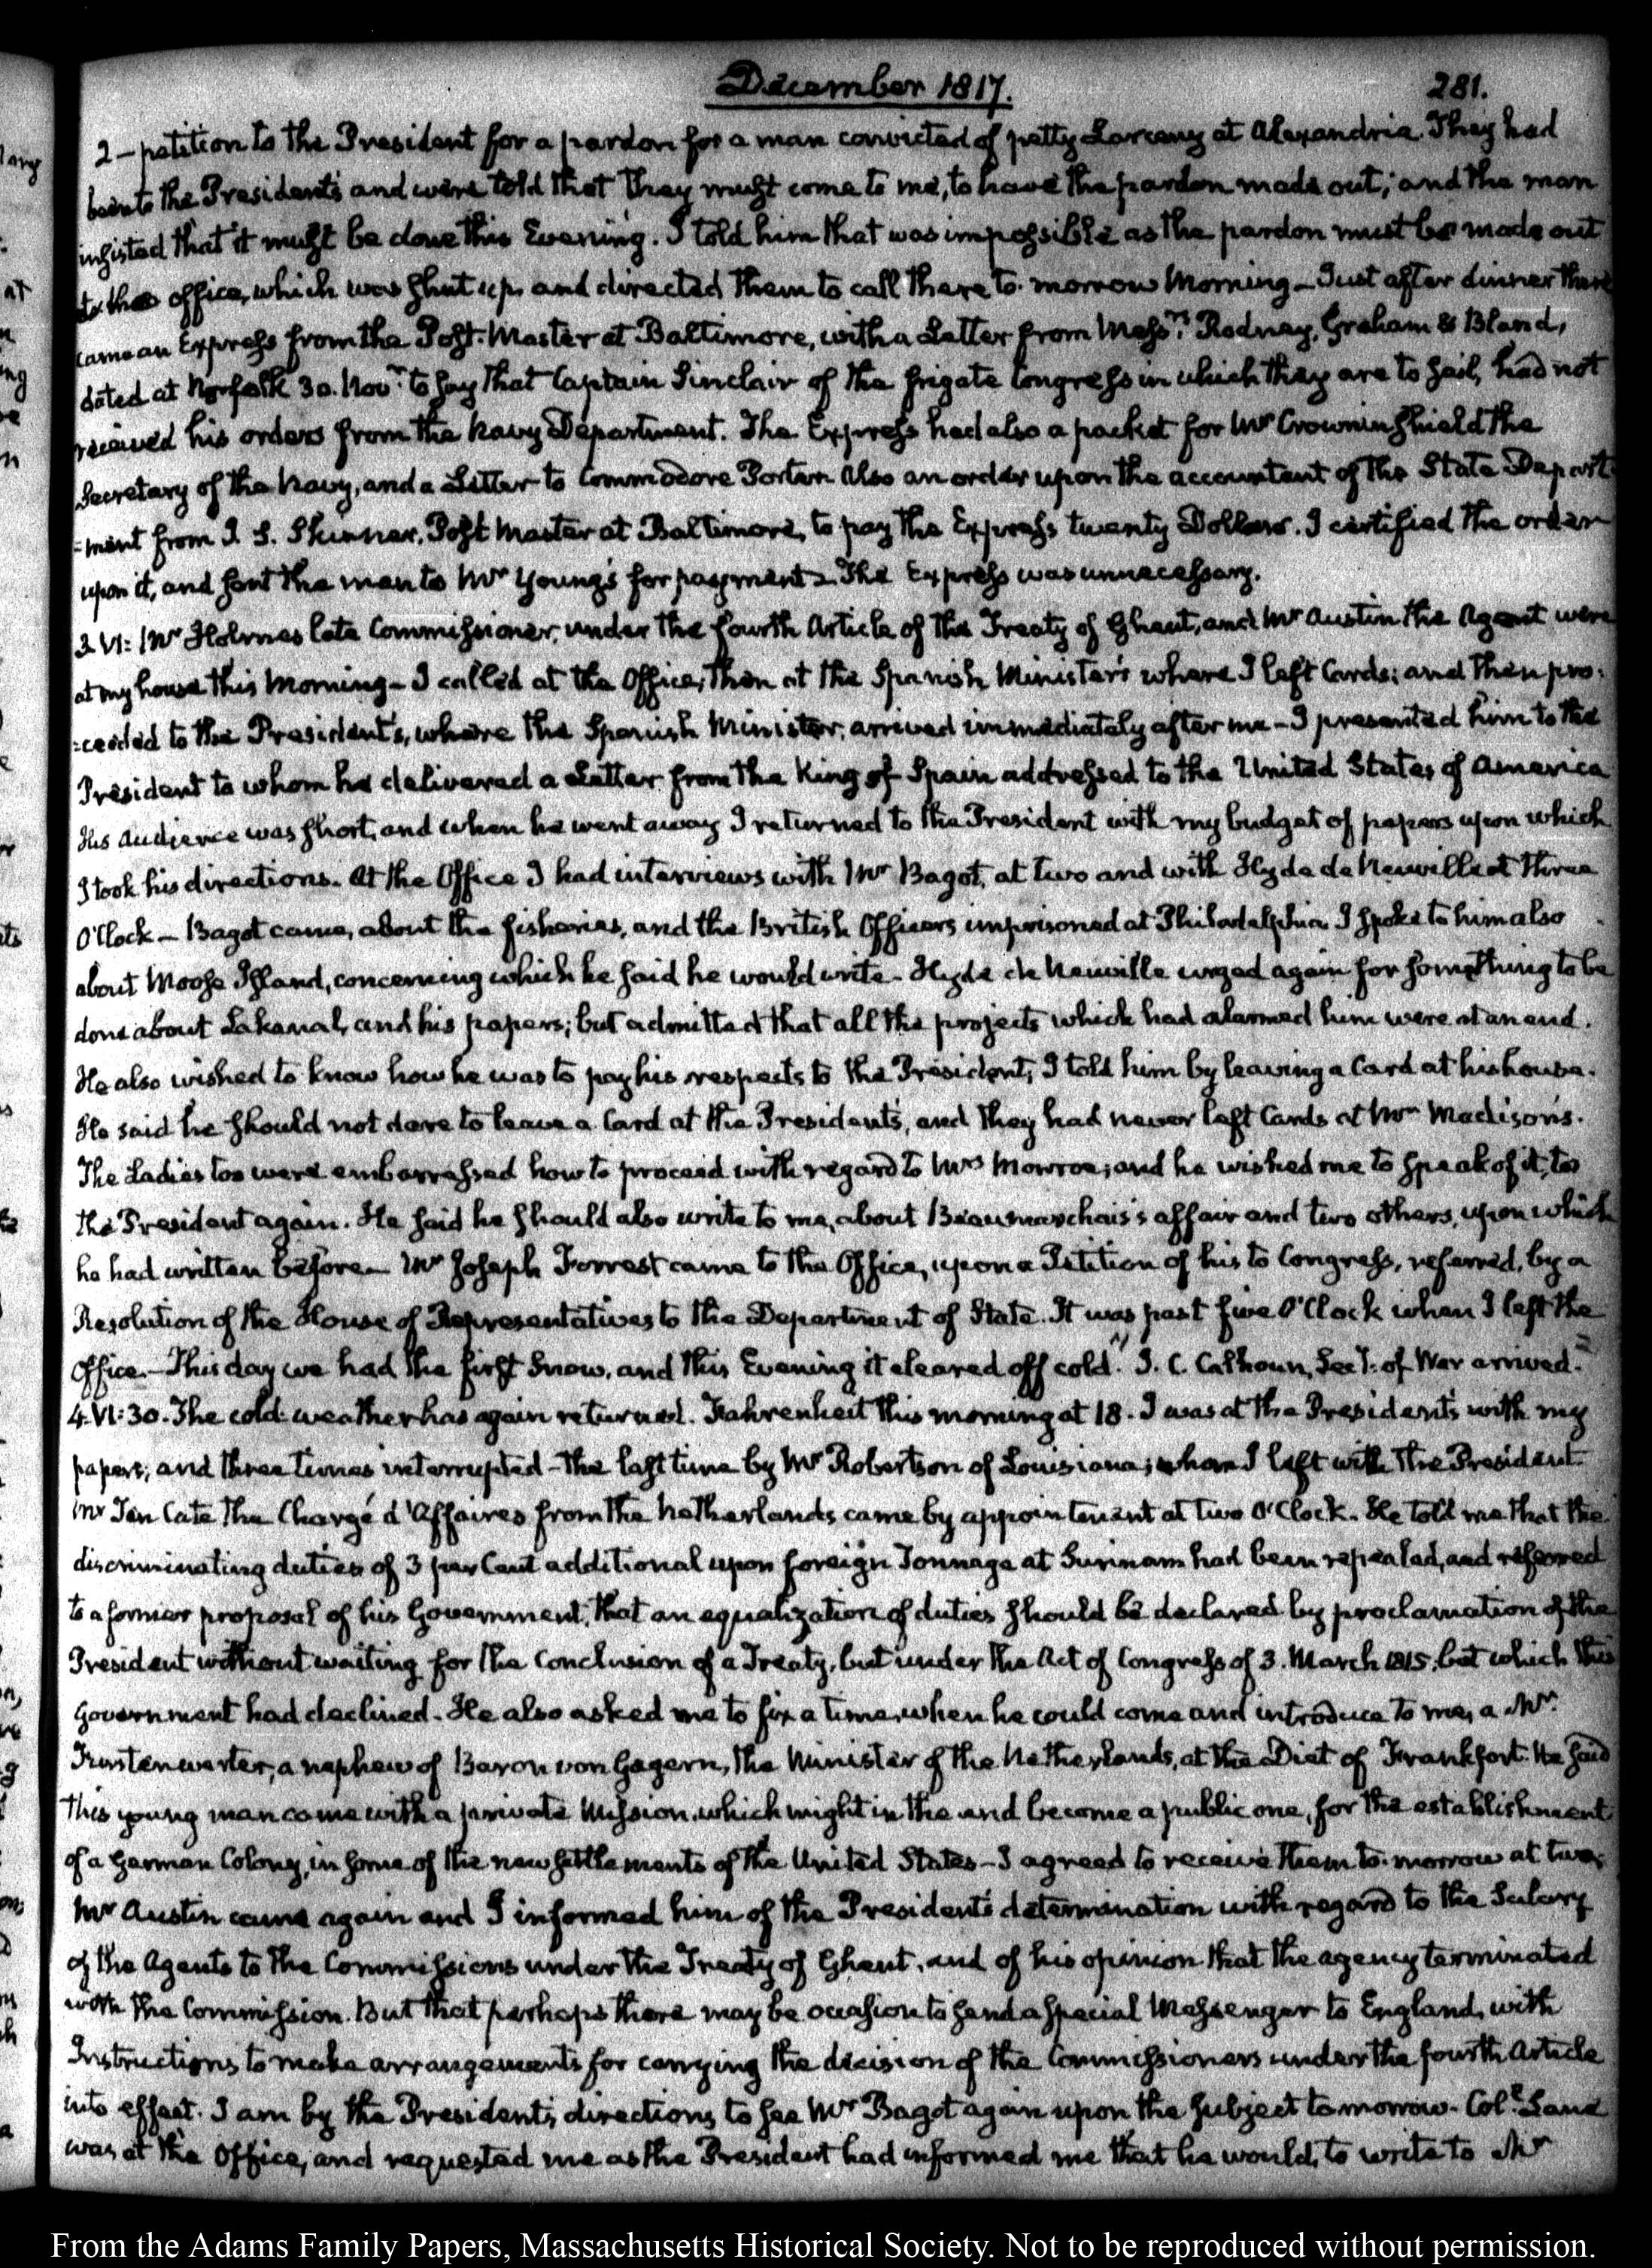 December 1817.
281.
2 – petition to the President for a pardon for a man convicted of petty Larceny at Alexandria. They had
been to the President's and were told that they must come to me, to have the pardon made out; and the man
insisted that it must be done this Evening. I told him that was impossible as the pardon must be made out
at the office, which was shut up, and directed them to call there to-morrow Morning – Just after dinner there
came an Express from the Post-Master at Baltimore, with a Letter from Messrs. Rodney, Graham & Bland,
dated at Norfolk 30. Novr. to say that Captain Sinclair of the frigate Congress in which they are to sail, had not
received his orders from the Navy Department. The Express had also a packet for Mr Crowninshield the
Secretary of the Navy, and a Letter to Commodore Porter. Also an order upon the accountant of the State Depart
=ment from J. S. Skinner, Post Master at Baltimore, to pay the Express twenty Dollars. I certified the order
upon it, and sent the man to Mr Young's for payment – The Express was unnecessary.
3. VI: Mr Holmes late Commissioner, under the fourth Article of the Treaty of Ghent, and Mr Austin the Agent were
at my house this Morning – I called at the Office; then at the Spanish Minister's where I left Cards; and then pro=
=ceeded to the President's, where the Spanish Minister, arrived immediately after me – I presented him to the
President to whom he delivered a Letter from the King of Spain addressed to the United States of America
His Audience was short, and when he went away I returned to the President with my budget of papers upon which
I took his directions. At the Office I had interviews with Mr Bagot, at two and with Hyde de Neuville at three
O'Clock – Bagot came, about the fisheries, and the British Officers imprisoned at Philadelphia I spoke to him also
about Moose Island, concerning which he said he would write – Hyde de Neuville urged again for something to be
done about Lakanal, and his papers; but admitted that all the projects which had alarmed him were at an end.
He also wished to know how he was to pay his respects to the President; I told him by leaving a Card at his house.
He said he should not dare to leave a Card at the President's, and they had never left Cards at Mr Madison's.
The Ladies too were embarrassed how to proceed with regard to Mrs Monroe; and he wished me to speak of it, to
the President again. He said he should also write to me, about Beaumarchais's affair and two others, upon which
he had written before – Mr Joseph Forrest came to the Office, upon a Petition of his to Congress, referred, by a
Resolution of the House of Representatives to the Department of State. It was past five O'Clock when I left the
Office. – This day we had the first Snow, and this Evening it cleared off cold. J. C. Calhoun, Secy. of War arrived.
4. VI:30. The cold weather has again returned. Fahrenheit this morning at 18. I was at the President's with my
papers; and three times interrupted – the last time by Mr Robertson of Louisiana; whom I left with the President
Mr Ten Cate the Chargé d'Affaires from the Netherlands came by appointment at two O'Clock. He told me that the
discriminating duties of 3 per Cent additional upon foreign Tonnage at Surinam had been repealed, and referred
to a former proposal of his Government, that an equalization of duties should be declared by proclamation of the
President without waiting for the Conclusion of a Treaty, but under the Act of Congress of 3. March 1815, but which this
Government had declined. He also asked me to fix a time, when he could come and introduce to me, a Mr.
Furstenwerter, a nephew of Baron von Gagern, the Minister of the Netherlands, at the Diet of Frankfort. He said
this young man came with a private Mission, which might in the end become a public one, for the establishment
of a German Colony, in some of the new settlements of the United States – I agreed to receive them to-morrow at two.
Mr Austin came again and I informed him of the President's determination with regard to the Salary
of the Agents to the Commissions under the Treaty of Ghent, and of his opinion that the agency terminated
with the Commission. But that perhaps there may be occasion to send a special Messenger to England, with
Instructions to make arrangements for carrying the decision of the Commissioners under the fourth Article
into effect. I am by the President's directions to see Mr Bagot again upon the subject to morrow. Coll. Lane
was at the Office, and requested me as the President had informed me that he would, to write to Mr
From the Adams Family Papers, Massachusetts Historical Society. Not to be reproduced without permission.